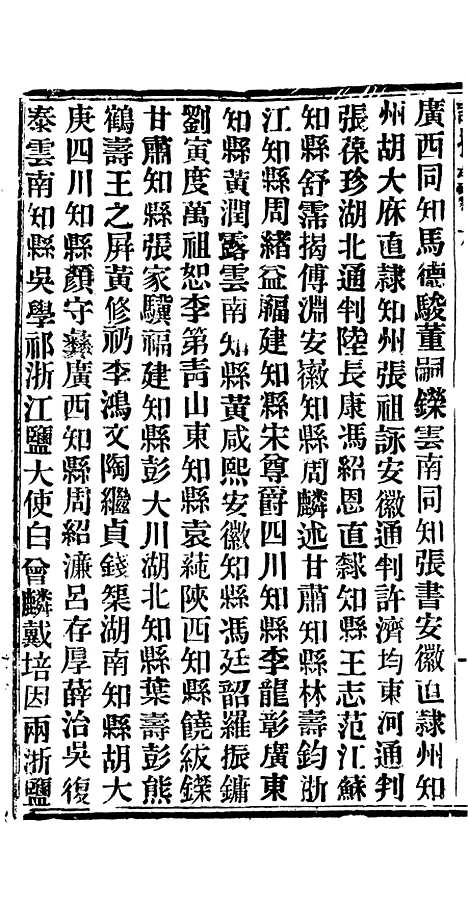 廣西同知馬德駿董嗣鑅雲南同知張書安徽直隸州知
州胡大麻直隸知州張祖詠安徽通判許濟均東河通判
張葆珍湖北通判陸長康馮紹恩直隸知縣王志范江蘇
知縣舒霈揭傅淵安徽知縣周麟述甘肅知縣林壽鈞浙
江知縣周緒益福建知縣宋尊爵四川知縣李龍彰廣東
知縣黃潤露雲南知縣黃咸熙安徽知縣馮廷韶羅振鏞
劉寅度萬祖恕李第靑山東知縣袁蒓陝西知縣饒紱鑅
甘肅知縣張家驥福建知縣彭大川湖北知縣葉壽彭熊
鶴壽王之屛黃修礽李鴻文陶繼貞錢榘湖南知縣胡大
庚四川知縣顏守彝廣西知縣周紹濂呂存厚薛治吳復
泰雲南知縣吳學祁浙江鹽大使白曾麟戴培因兩浙鹽